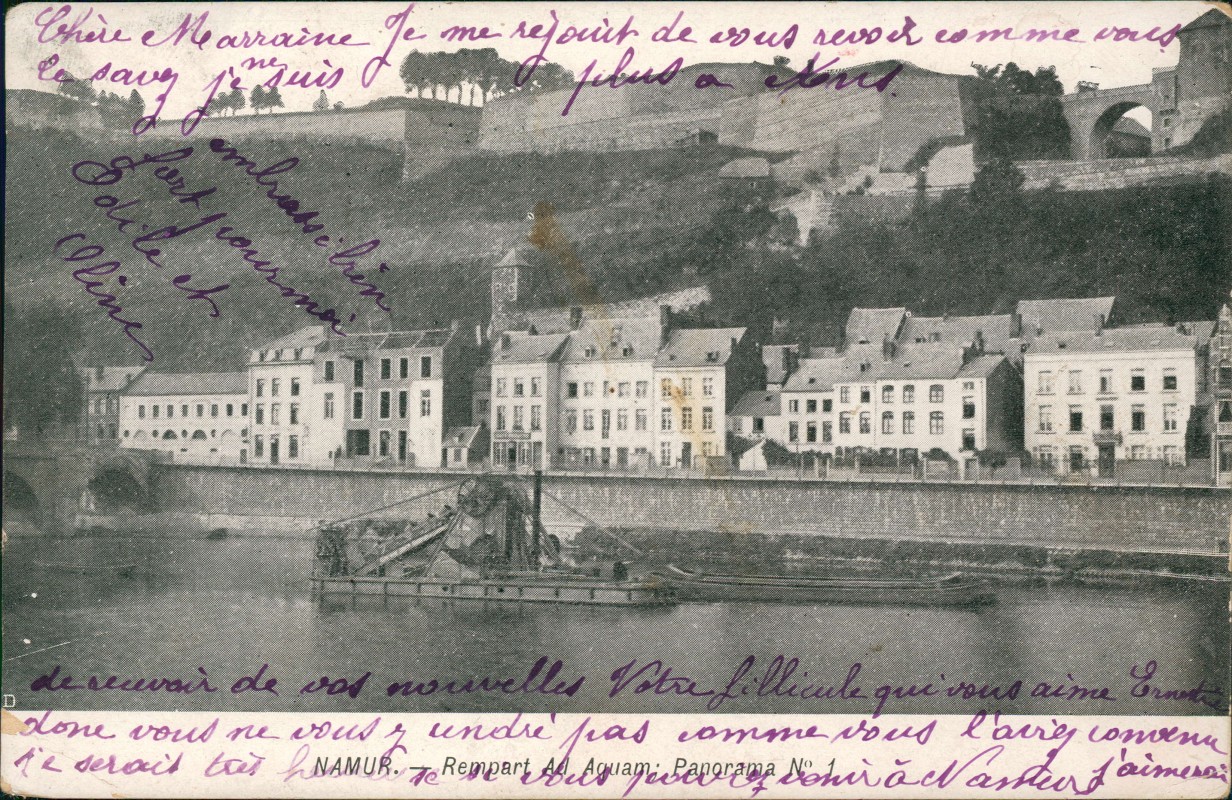 Chère Marraine Je me réjouit de vous revoir comme vous
le savez je ne suis plus a Xhus.
embrassé bien
fort pour moi
Edile et
Oline
de recevoir de vos nouvelles Votre fillicule qui vous aime Ernest
donc vous ne vous y rendré pas comme vous l'aviez convenu
D
je serait très si vous pouvez venir à Namur j'aimerai
NAMUR. — Rempart Ad Aquam: Panorama N° 1